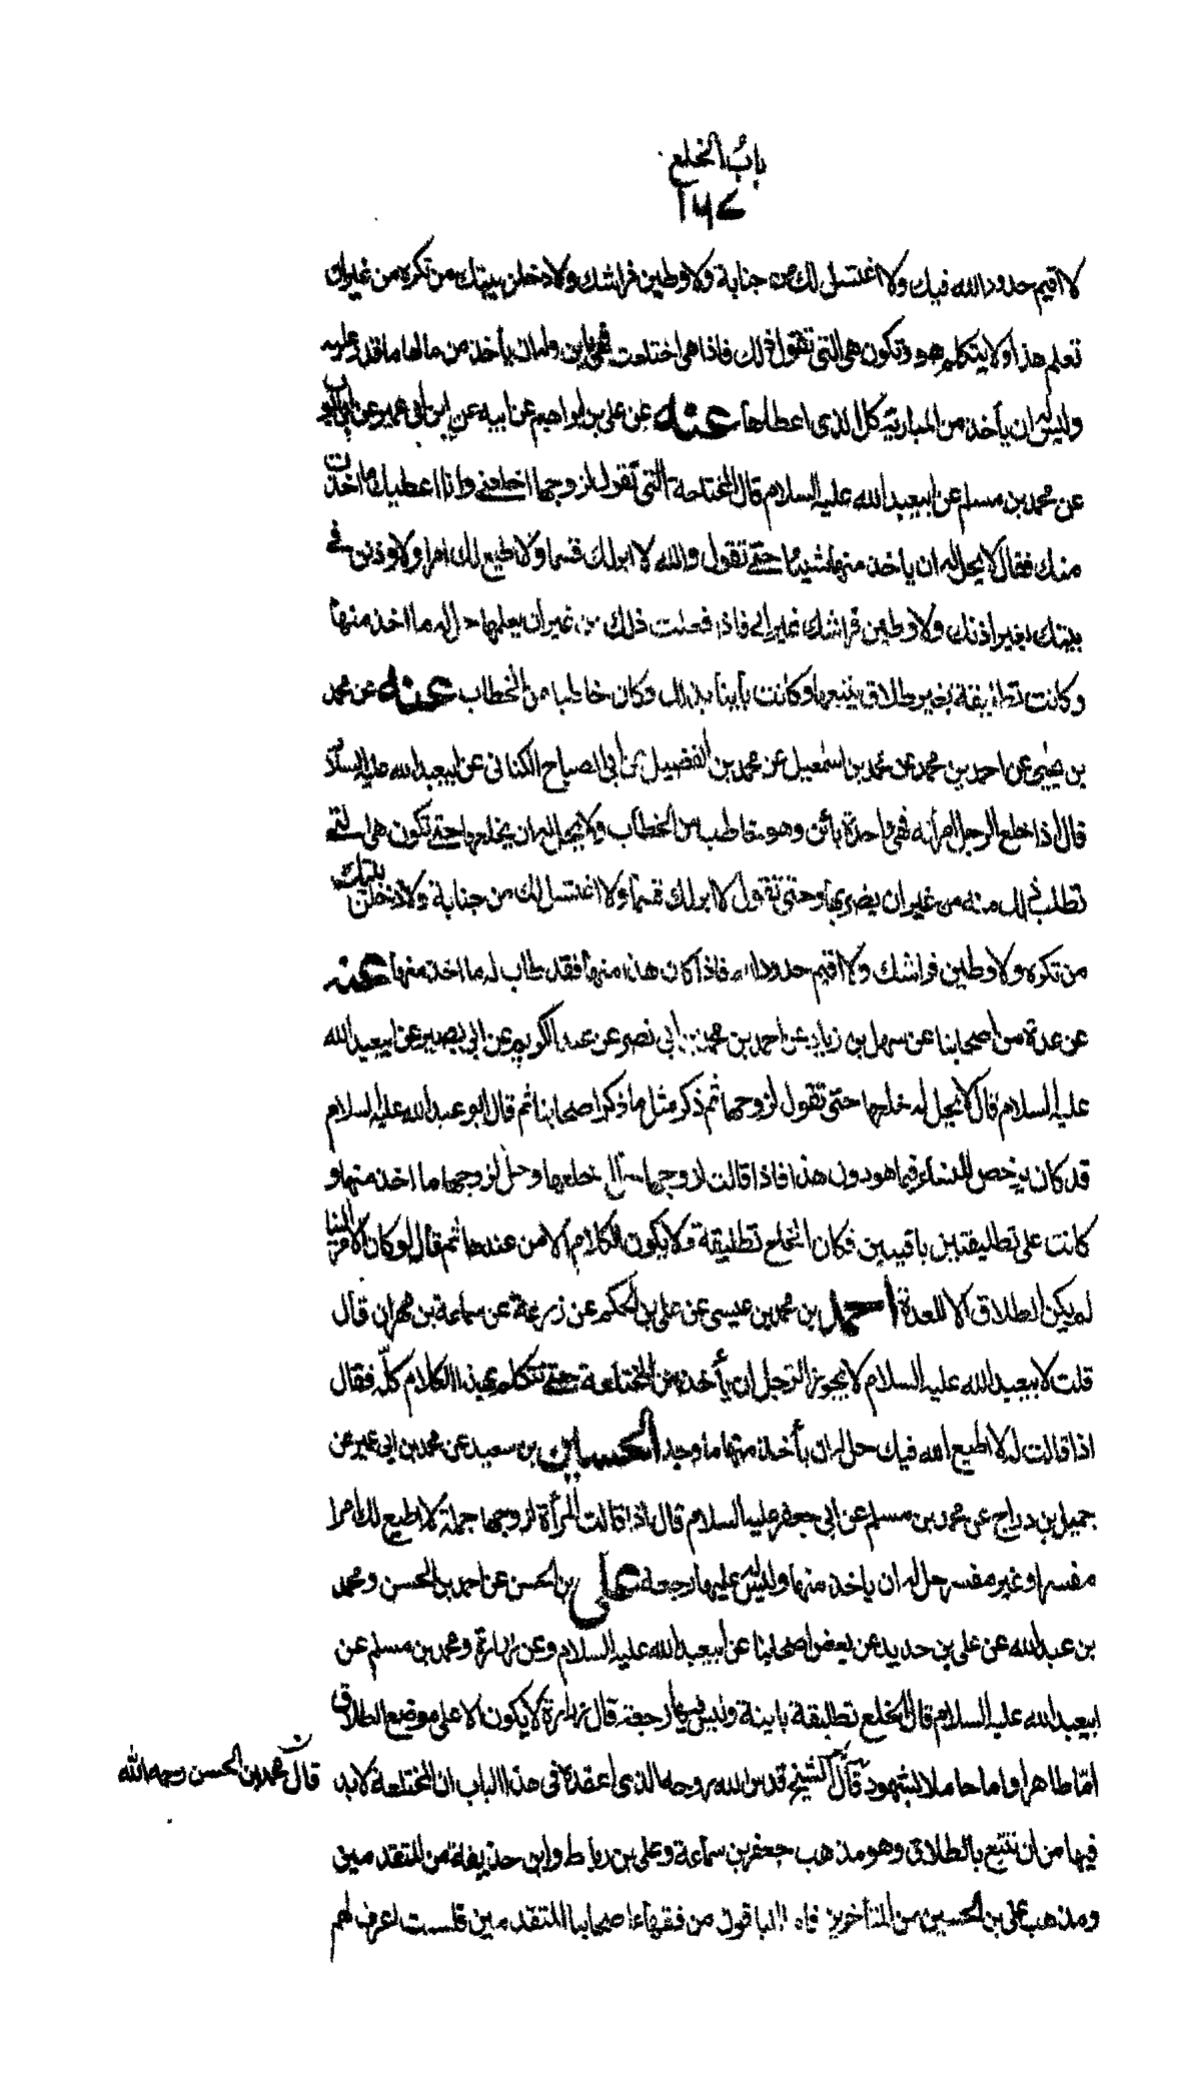 باب الخلع
١٦٧
لا اقيم حدود الله فيك ولا اغتسل لك من جنابة ولاوطين فراشك ولادخلن بيتك من تكره من غير ان
تعلم هذا ولا يتكلم هو وتكون هى التى تقول ذلك فاذا هى اختلعت فهى باين وله ان يأخذ من مالها ما قدر عليه
وليس له ان يأخذ من المبارية كل الذى اعطاها عنه عن على بن ابراهيم عن ابيه عن ابن ابى عمير عن ابى ايوب
عن محمد بن مسلم عن ابيعبد الله عليه السلام قال المختلعة التى تقول لزوجها اخلعنى وانا اعطيك ما اخذت
منك فقال لا يحل له ان ياخذ منها شيئا حتى تقول والله لا ابر لك قسما ولا اطيع لك امرا ولاوذنن فى
بيتك بغير اذنك ولاوطين فراشك غيرك فاذا فعلت ذلك من غير ان يعلمها حل له ما اخذ منها
وكانت تطليقة بغير طلاق يتبعها وكانت باينا بذلك وكان خاطبا من الخطاب عنه عن محمد
بن يحيى عن احمد بن محمد عن محمد بن اسمعيل عن محمد بن الفضيل عن ابى الصباح الكنانى عن ابيعبد الله عليه السلام
قال اذا خلع الرجل امرأته فهى واحدة بائن وهو خاطب من الخطاب ولا يحل له ان يخلعها حتى تكون هى التى
تطلب ذلك منه من غير ان يضر بها وحتى تقول لا ابر لك قسما ولا اغتسل لك من جنابة ولادخلن بيتك
من تكره ولاوطين فراشك ولا اقيم حدود الله فاذا كان هذا منها فقد طاب له ما اخذ منها عنه
عن عدة من اصحابنا عن سهل بن زياد عن احمد بن محمد بن ابى نصر عن عبد الكريم عن ابى بصير عن ابيعبد الله
عليه السلام قال لا يحل له خلعها حتى تقول لزوجها ثم ذكر مثل ما ذكر اصحابنا ثم قال ابو عبد الله عليه السلام
قد كان يرخص للنساء فيما هو دون هذا فاذا قالت لزوجها ذلك خلعها وحل لزوجها ما اخذ منها و
كانت على تطليقتين باقيتين وكان الخلع تطليقة ولا يكون الكلام الا من عندها ثم قال لو كان الامر الينا
لم يكن الطلاق الا للعدة احمد بن محمد بن عيسى عن على بن الحكم عن زرعة عن سماعة بن مهران قال
قلت لابيعبد الله عليه السلام لا يجوز للرجل ان يأخذ من المختلعة حتى تتكلم بهذا الكلام كله فقال
اذا قالت له لا اطيع الله فيك حل له ان يأخذ منها ما وجد الحسين بن سعيد عن محمد بن ابى عمير عن
جميل بن دراج عن محمد بن مسلم عن ابى جعفر عليه السلام قال اذا قالت المرأة لزوجها جملة لا اطيع لك امرا
مفسرا وغير مفسر حل له ان ياخذ منها وليس له عليها رجعة على بن الحسن عن احمد بن الحسن ومحمد
بن عبد الله عن على بن حديد عن بعض اصحابنا عن ابيعبد الله عليه السلام وعن زرارة ومحمد بن مسلم عن
ابيعبد الله عليه السلام قال الخلع تطليقة باينة وليس فيها رجعة قال زرارة لا يكون الا على موضع الطلاق
اما طاهرا واما حاملا بشهود قال الشيخ قدس الله روحه الذى اعتقده فى هذا الباب ان المختلعة لابد
قال محمد بن الحسن رحمه الله
فيها من ان تتبع بالطلاق وهو مذهب جعفر بن سماعة وعلى بن رباط وابن حذيفة من المتقدمين
ومذهب على بن الحسين من المتأخرين فاما الباقون من فقهاء اصحابنا المتقدمين فلست اعرف لهم